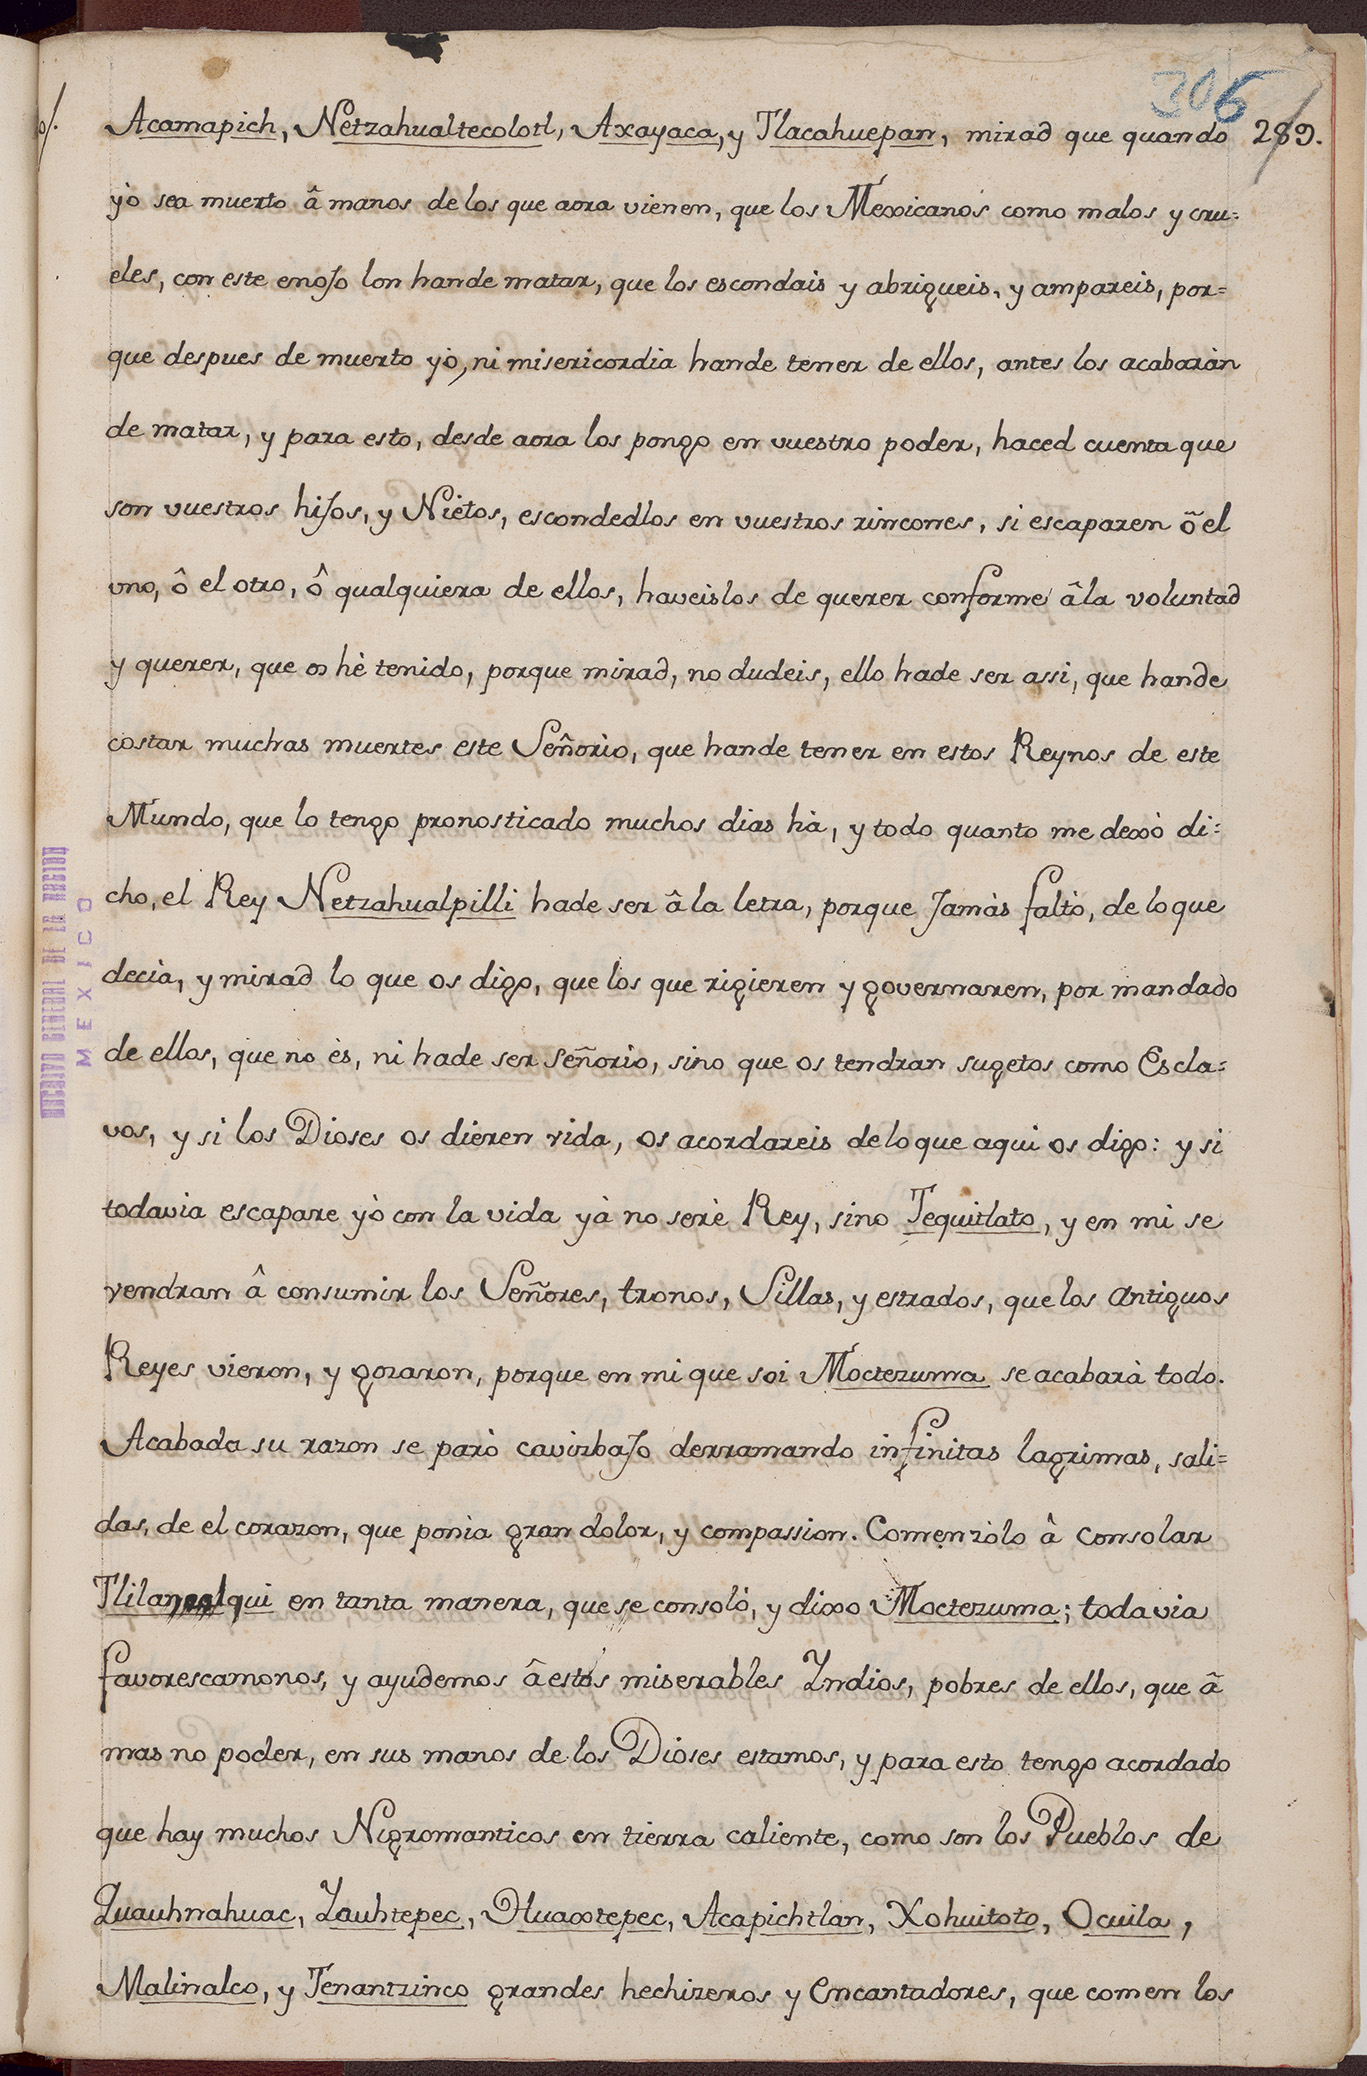 306
289.
Acamapich, Netzahualtecolotl, Axayaca, y Tlacahuepan, mirad que quando
yò sea muerto â manos de los que aora vienen, que los Mexicanos como malos y cru=
eles, con este enojo lon hande matar, que los escondais y abrigueis, y ampareis, por=
que despues de muerto yò, ni misericordia hande tener de ellos, antes los acabaràn
de matar, y para esto, desde aora los pongo en vuestro poder, haced cuenta que
son vuestros hijos, y Nietos, escondedlos en vuestros rincones, si escaparen õ el
vno, ô el otro, ô qualquiera de ellos, haveislos de querer conforme âla voluntad
y querer, que os hè tenido, porque mirad, no dudeis, ello hade ser assi, que hande
costar muchas muertes este Señorio, que hande tener en estos Reynos de este
Mundo, que lo tengo pronosticado muchos dias hà, y todo quanto me dexò di=
cho, el Rey Netzahualpilli hade ser â la letra, porque Jamàs faltò, de lo que
decia, y mirad lo que os digo, que los que rigieren y governaren, por mandado
de ellos, que no ès, ni hade ser señorio, sino que os tendran sugetos como Escla=
vos, y si los Dioses os dieren vida, os acordareis de lo que aqui os digo: y si
todavia escapare yò con la vida yà no serè Rey, sino Tequitlato, y en mi se
vendran â consumir los Señores, tronos, Sillas, y estrados, que los antiguos
Reyes vieron, y gozaron, porque en mi que soi Moctezuma se acabarà todo.
Acabada su razon se parò cavizbajo derramando infinitas lagrimas, sali=
das, de el corazon, que ponia gran dolor, y compassion. Comenzòlo â consolar
Tlilancalqui en tanta manera, que se consolò, y dixo Moctezuma; todavia
favorescamonos, y ayudemos â estos miserables Yndios, pobres de ellos, que ã
mas no poder, en sus manos de los Dioses estamos, y para esto tengo acordado
que hay muchos Nigromanticos en tierra caliente, como son los Pueblos de
Quauhnahuac, Yauhtepec, Huaxtepec, Acapichtlan, Xohuitoto, Ocuila,
Malinalco, y Tenantzinco grandes hechizeros y Encantadores, que comen los
ARCHIVO GENERAL DE LA NACION
MEXICO